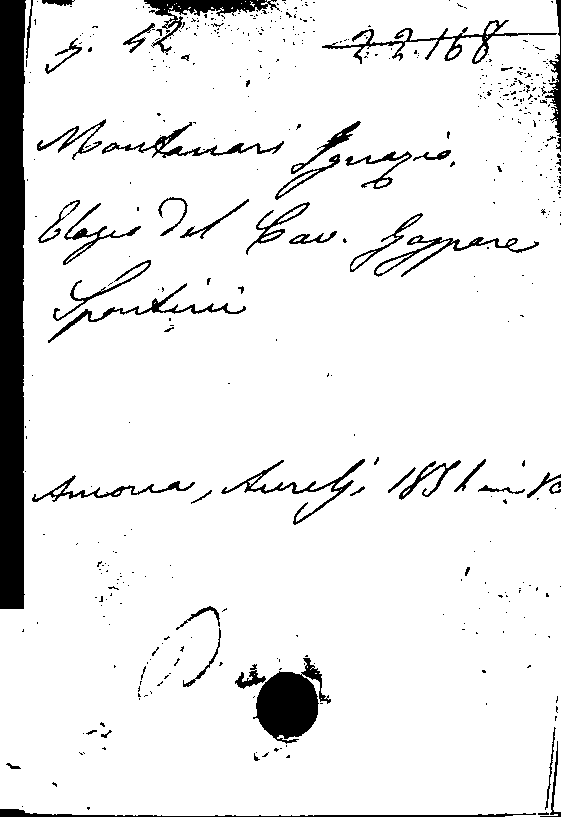 g. 42. 22.168
Montanari Ignazio.
Elogio del Cav. Gaspare
Spontini
Ancona, Aurelj, 1851 in 8